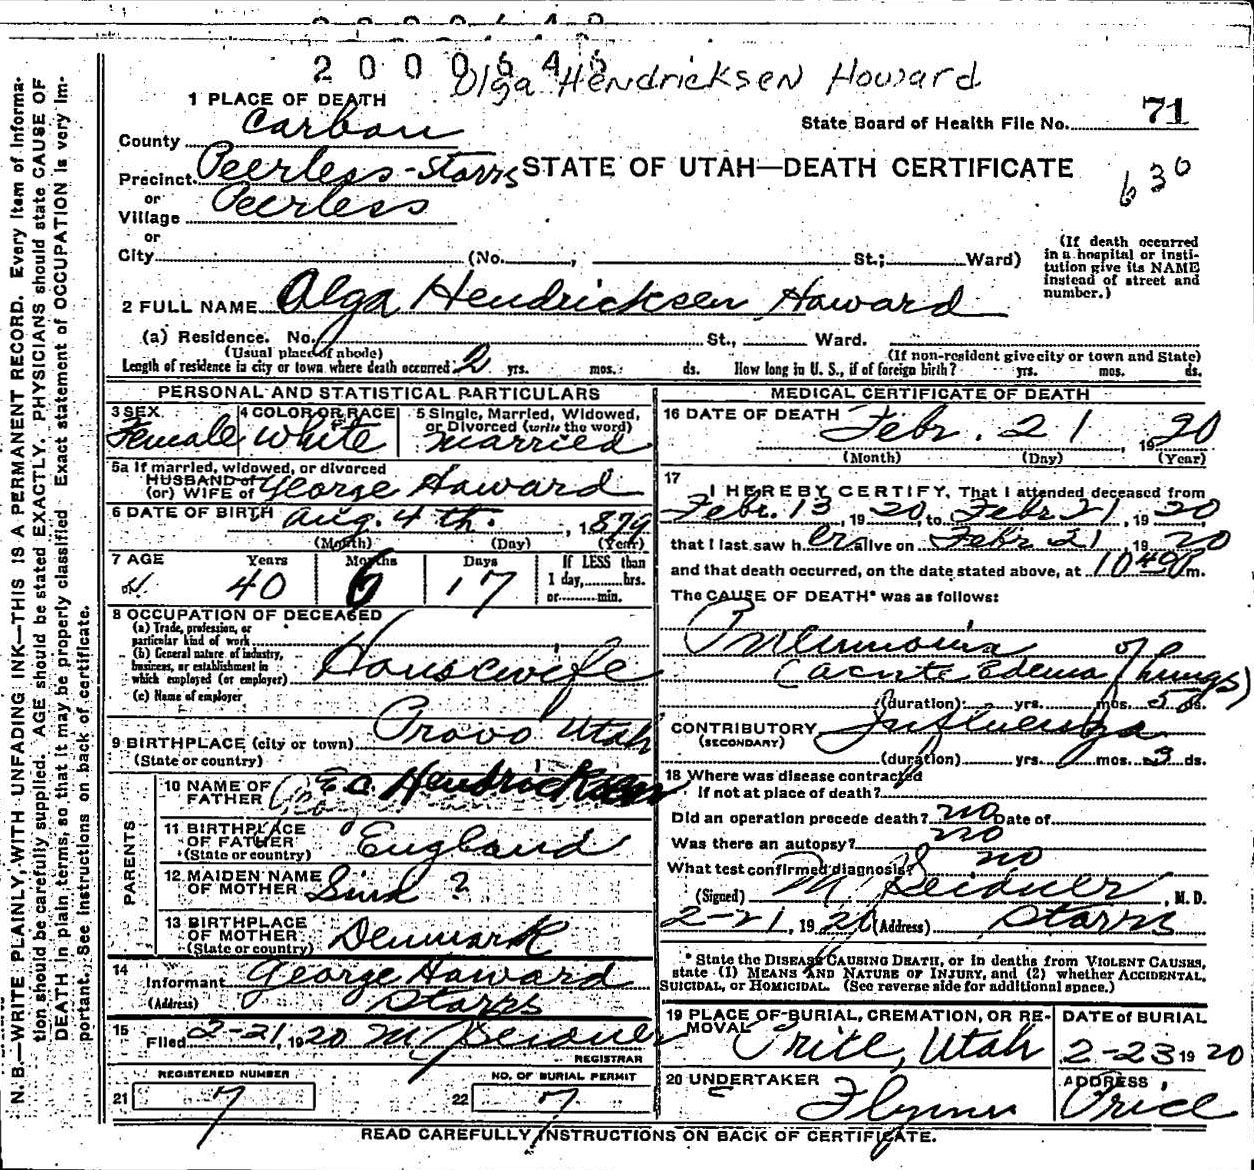 2000645
Olga Hendricksen Howard
1 PLACE OF DEATH
County Carbon
State Board of Health File No. 71
Precinct Peerless-Storrs
STATE OF UTAH—DEATH CERTIFICATE
630
or
Village Peerless
or
City (No. , St.; Ward)
(If death occurred in a hospital or insti-
tution give its NAME
instead of street and
number.)
2 FULL NAME Olga Hendricksen Howard
(a) Residence. No. St., Ward.
(Usual place of abode) (If non-resident give city or town and State)
Length of residence in city or town where death occurred 2 yrs. mos. ds. How long in U. S., if of foreign birth? yrs. mos. ds.
PERSONAL AND STATISTICAL PARTICULARS
3 SEX Female
4 COLOR OR RACE White
5 Single, Married, Widowed,
or Divorced (write the word)
Married
5a If married, widowed, or divorced
HUSBAND of
(or) WIFE of George Howard
6 DATE OF BIRTH Aug. 4th. , 1879
(Month) (Day) (Year)
7 AGE Years Months Days If LESS than
40 6 17 1 day, hrs.
or min.
8 OCCUPATION OF DECEASED
(a) Trade, profession, or
particular kind of work
(b) General nature of industry,
business, or establishment in
which employed (or employer) Housewife
(c) Name of employer
9 BIRTHPLACE (city or town) Provo Utah
(State or country)
PARENTS
10 NAME OF
FATHER E.C. Hendricksen
11 BIRTHPLACE
OF FATHER England
(State or country)
12 MAIDEN NAME
OF MOTHER Sind ?
13 BIRTHPLACE
OF MOTHER Denmark
(State or country)
14
Informant George Howard
(Address) Storrs
15
Filed 2-21, 1920 M. Seidner
REGISTRAR
REGISTERED NUMBER NO. OF BURIAL PERMIT
21 7 22 7
MEDICAL CERTIFICATE OF DEATH
16 DATE OF DEATH Feb. 21 , 1920
(Month) (Day) (Year)
17
I HEREBY CERTIFY, That I attended deceased from
Febr. 13, 1920, to Febr 21, 1920
that I last saw her alive on Febr 21 1920
and that death occurred, on the date stated above, at 10 40 P m.
The CAUSE OF DEATH* was as follows:
Pneumonia
(acute Edema of Lungs)
(duration) yrs. mos. 5 ds.
CONTRIBUTORY Influenza
(SECONDARY)
(duration) yrs. mos. 3 ds.
18 Where was disease contracted
If not at place of death?
Did an operation precede death? no Date of
Was there an autopsy? no
What test confirmed diagnosis? no
(Signed) M. Seidner, M. D.
2-21, 1920 (Address) Storrs
* State the DISEASE CAUSING DEATH, or in deaths from VIOLENT CAUSES,
state (1) MEANS AND NATURE OF INJURY, and (2) whether ACCIDENTAL,
SUICIDAL, or HOMICIDAL. (See reverse side for additional space.)
19 PLACE OF BURIAL, CREMATION, OR RE-
MOVAL Price, Utah
DATE of BURIAL
2-23 1920
20 UNDERTAKER Flynn
ADDRESS Price
READ CAREFULLY INSTRUCTIONS ON BACK OF CERTIFICATE.
N. B.—WRITE PLAINLY, WITH UNFADING INK—THIS IS A PERMANENT RECORD. Every item of informa-
tion should be carefully supplied. AGE should be stated EXACTLY. PHYSICIANS should state CAUSE OF
DEATH in plain terms, so that it may be properly classified Exact statement of OCCUPATION is very im-
portant. See instructions on back of certificate.